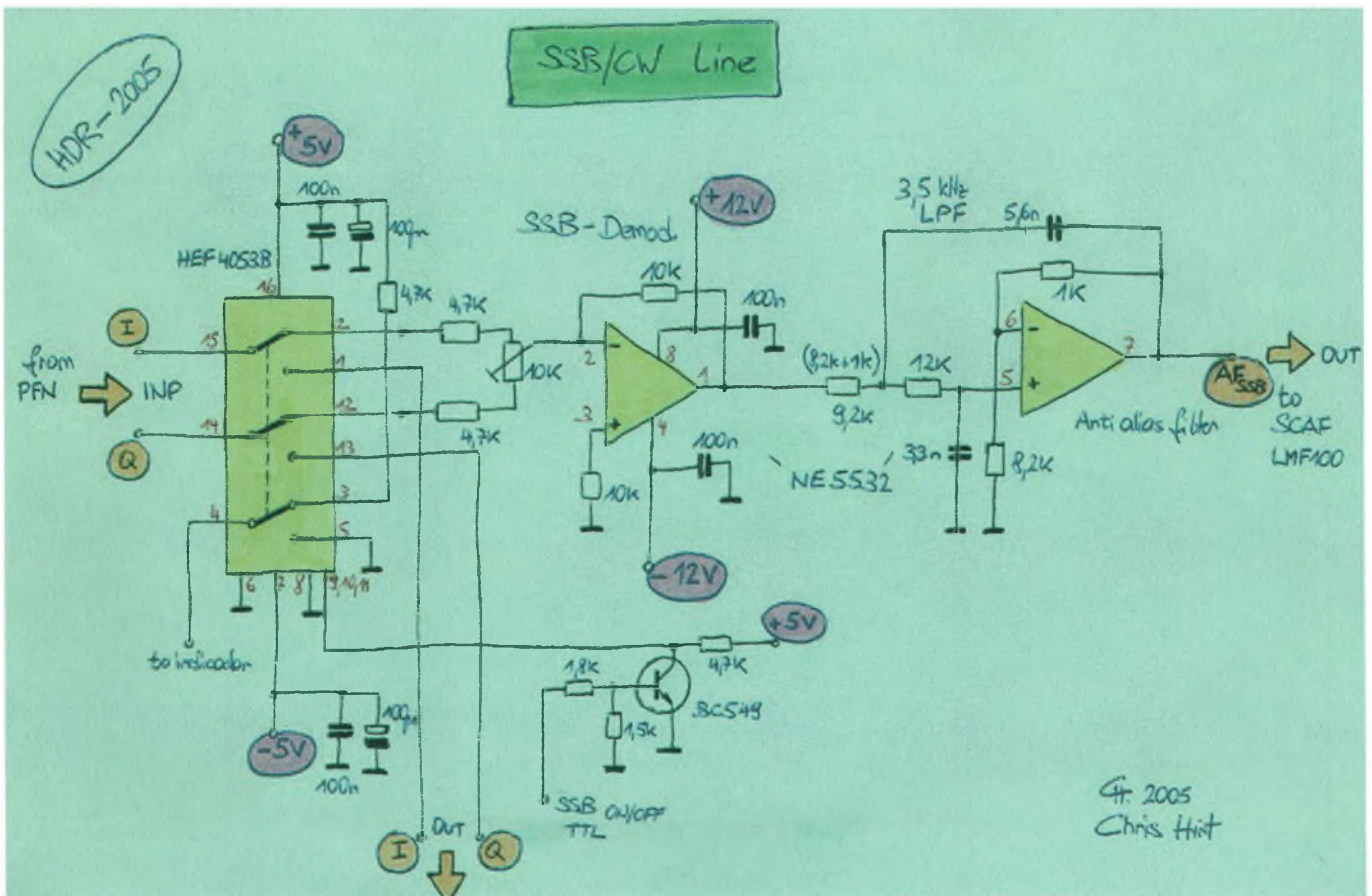 HDR-2005
SSB/CW Line
+5V
100n
100µ
HEF4053B
16
4,7K
I
15
2
4,7K
from
PFN
INP
1
10K
12
Q
14
4,7K
13
3
4
5
6
7
8
9,10,11
to indicador
-5V
100n
100µ
OUT
I
Q
SSB-Demod.
+12V
10K
100n
2
8
1
3
4
10K
100n
NE5532
-12V
+5V
4,7K
1,8K
BC549
1,5K
SSB ON/OFF
TTL
3,5 kHz
LPF
5,6n
1K
(8,2K+1K)
9,2K
12K
6
7
5
3,3n
8,2K
Anti alias filter
AF SSB
OUT
to
SCAF
LMF100
2005
Chris Hirt